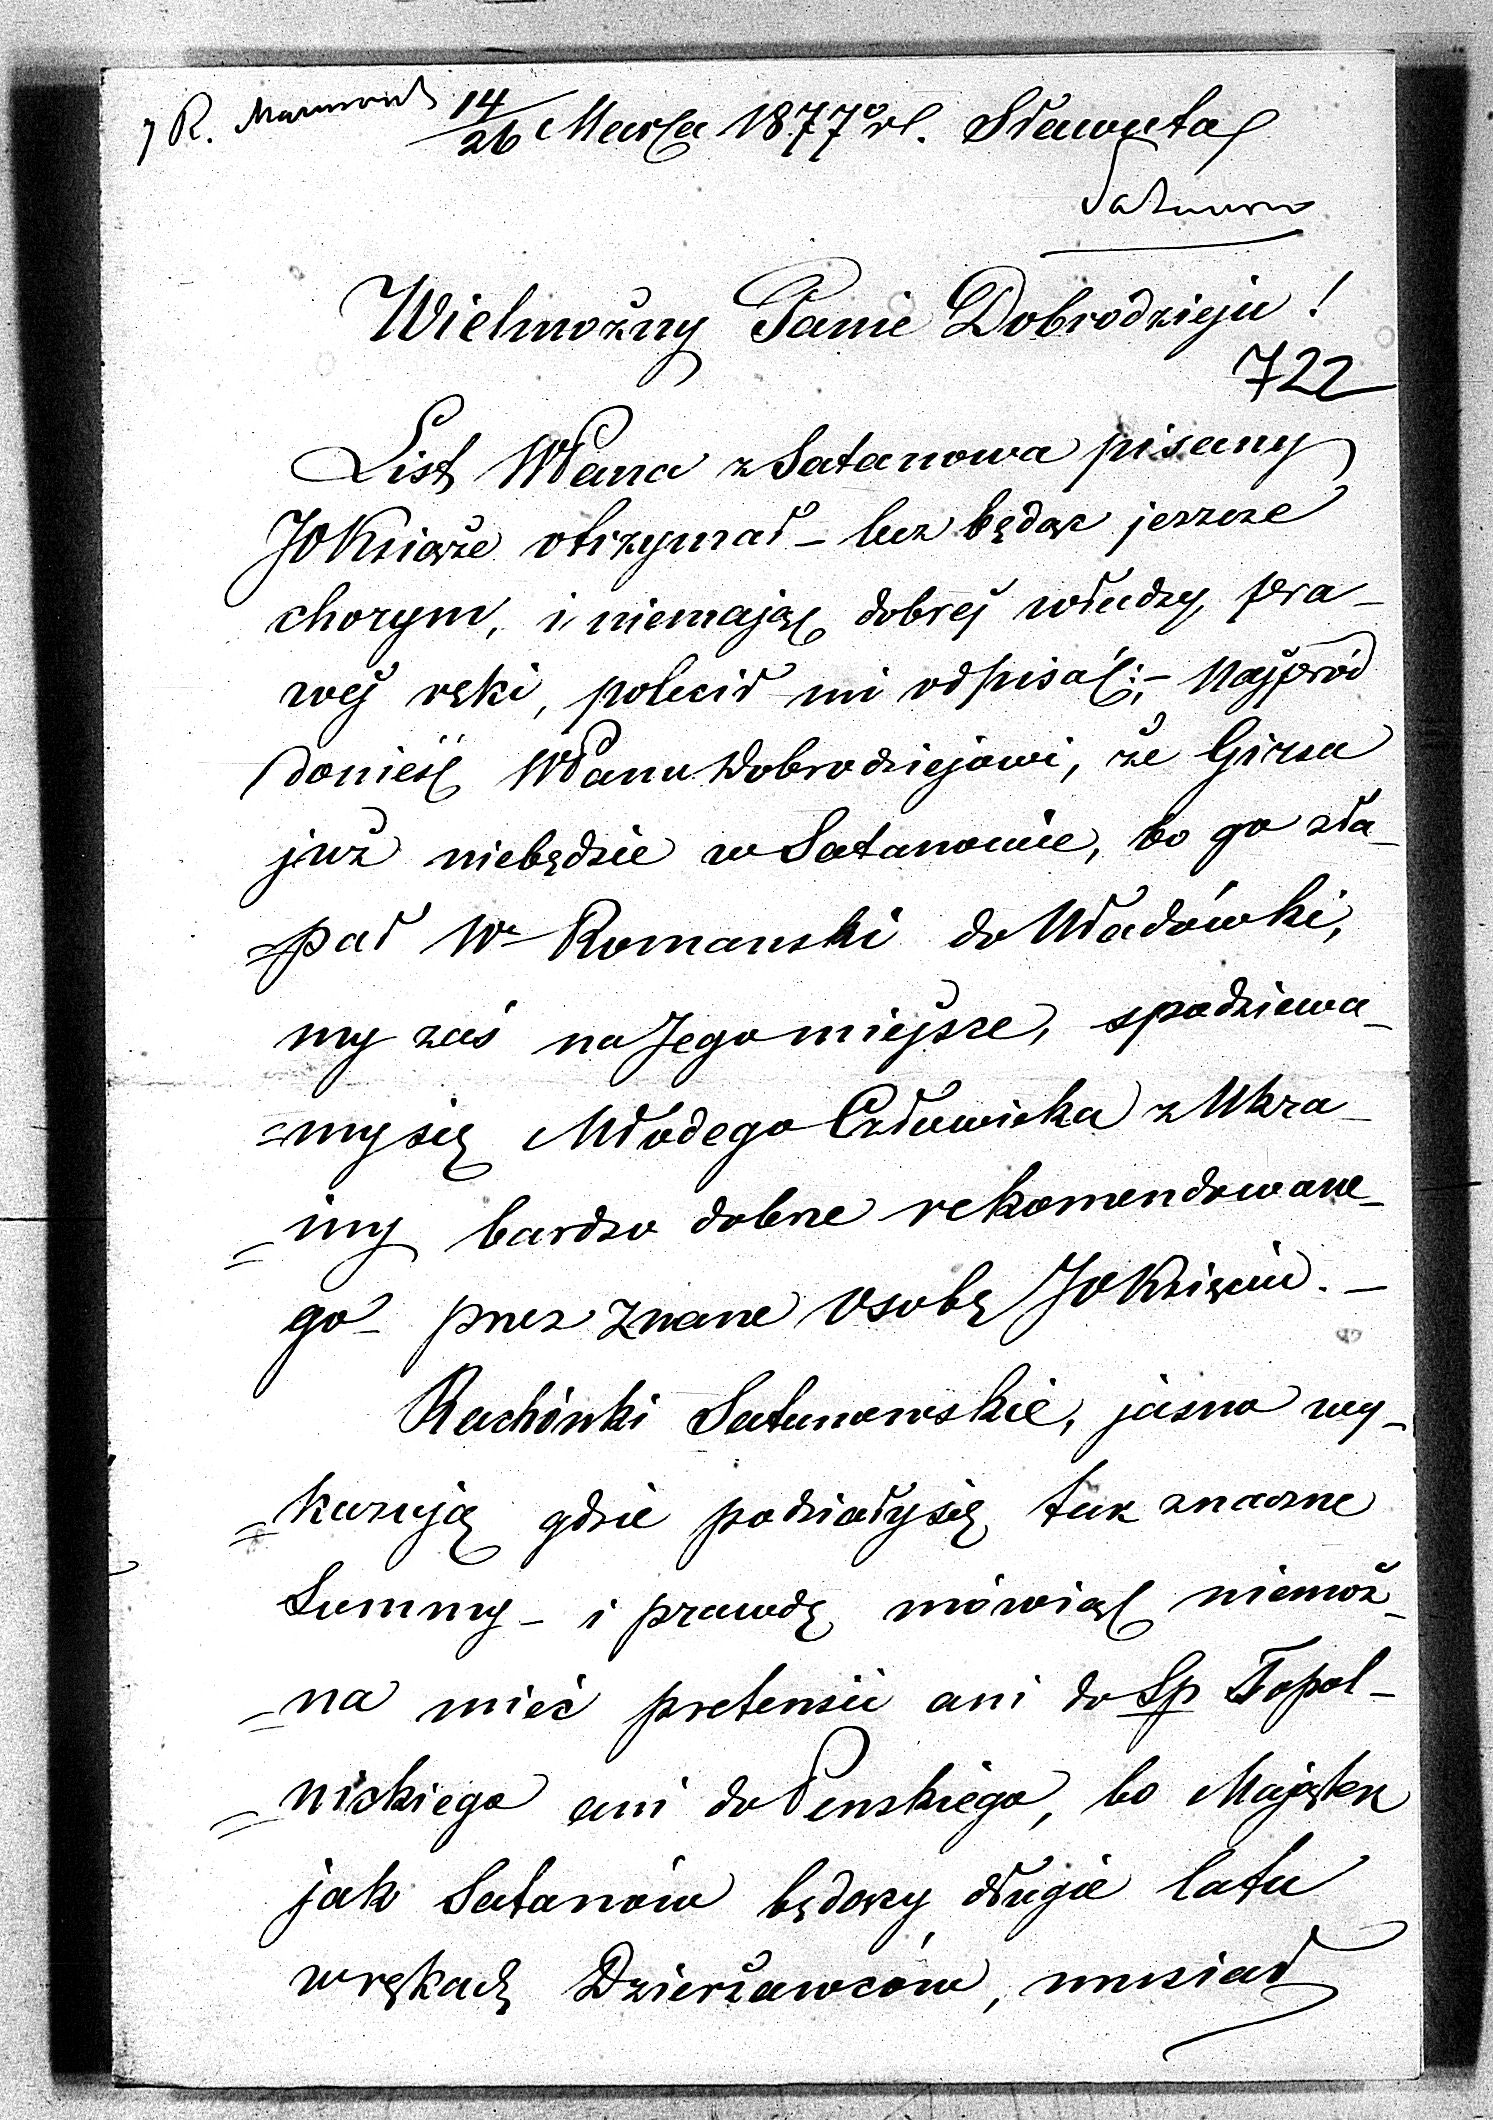 14/26 Marca 1877 r. Sławuta
Wielmożny Panie Dobrodzieju!
722
List WPana z Satanowa pisany
JO Książe otrzymał – lecz będąc jeszcze
chorym, i niemając dobrej władzy, pra-
wej ręki, polecił mi odpisać:– Najpród
donieść WPanu Dobrodziejowi, że Girsa
już niebędzie w Satanowie, bo go zła-
=pał Wny Romanski do Uładówki,
my zaś na Jego miejsce, spodziewa-
=my się Młodego Człowieka z Ukra-
=iny bardzo dobrze rekomendowane-
go przez znane osobę JO Księciu. –
Rachónki Satanowskie, jasno wy-
=kazują gdzie podziałysię tak znaczne
Summy – i prawdę mówiąc niemoż-
=na mieć pretensii ani do Sp Topol-
=nickiego ani do Penskiego, bo Majątek
jak Satanów będący długie lata
w rękach Dzierżawców, musiał